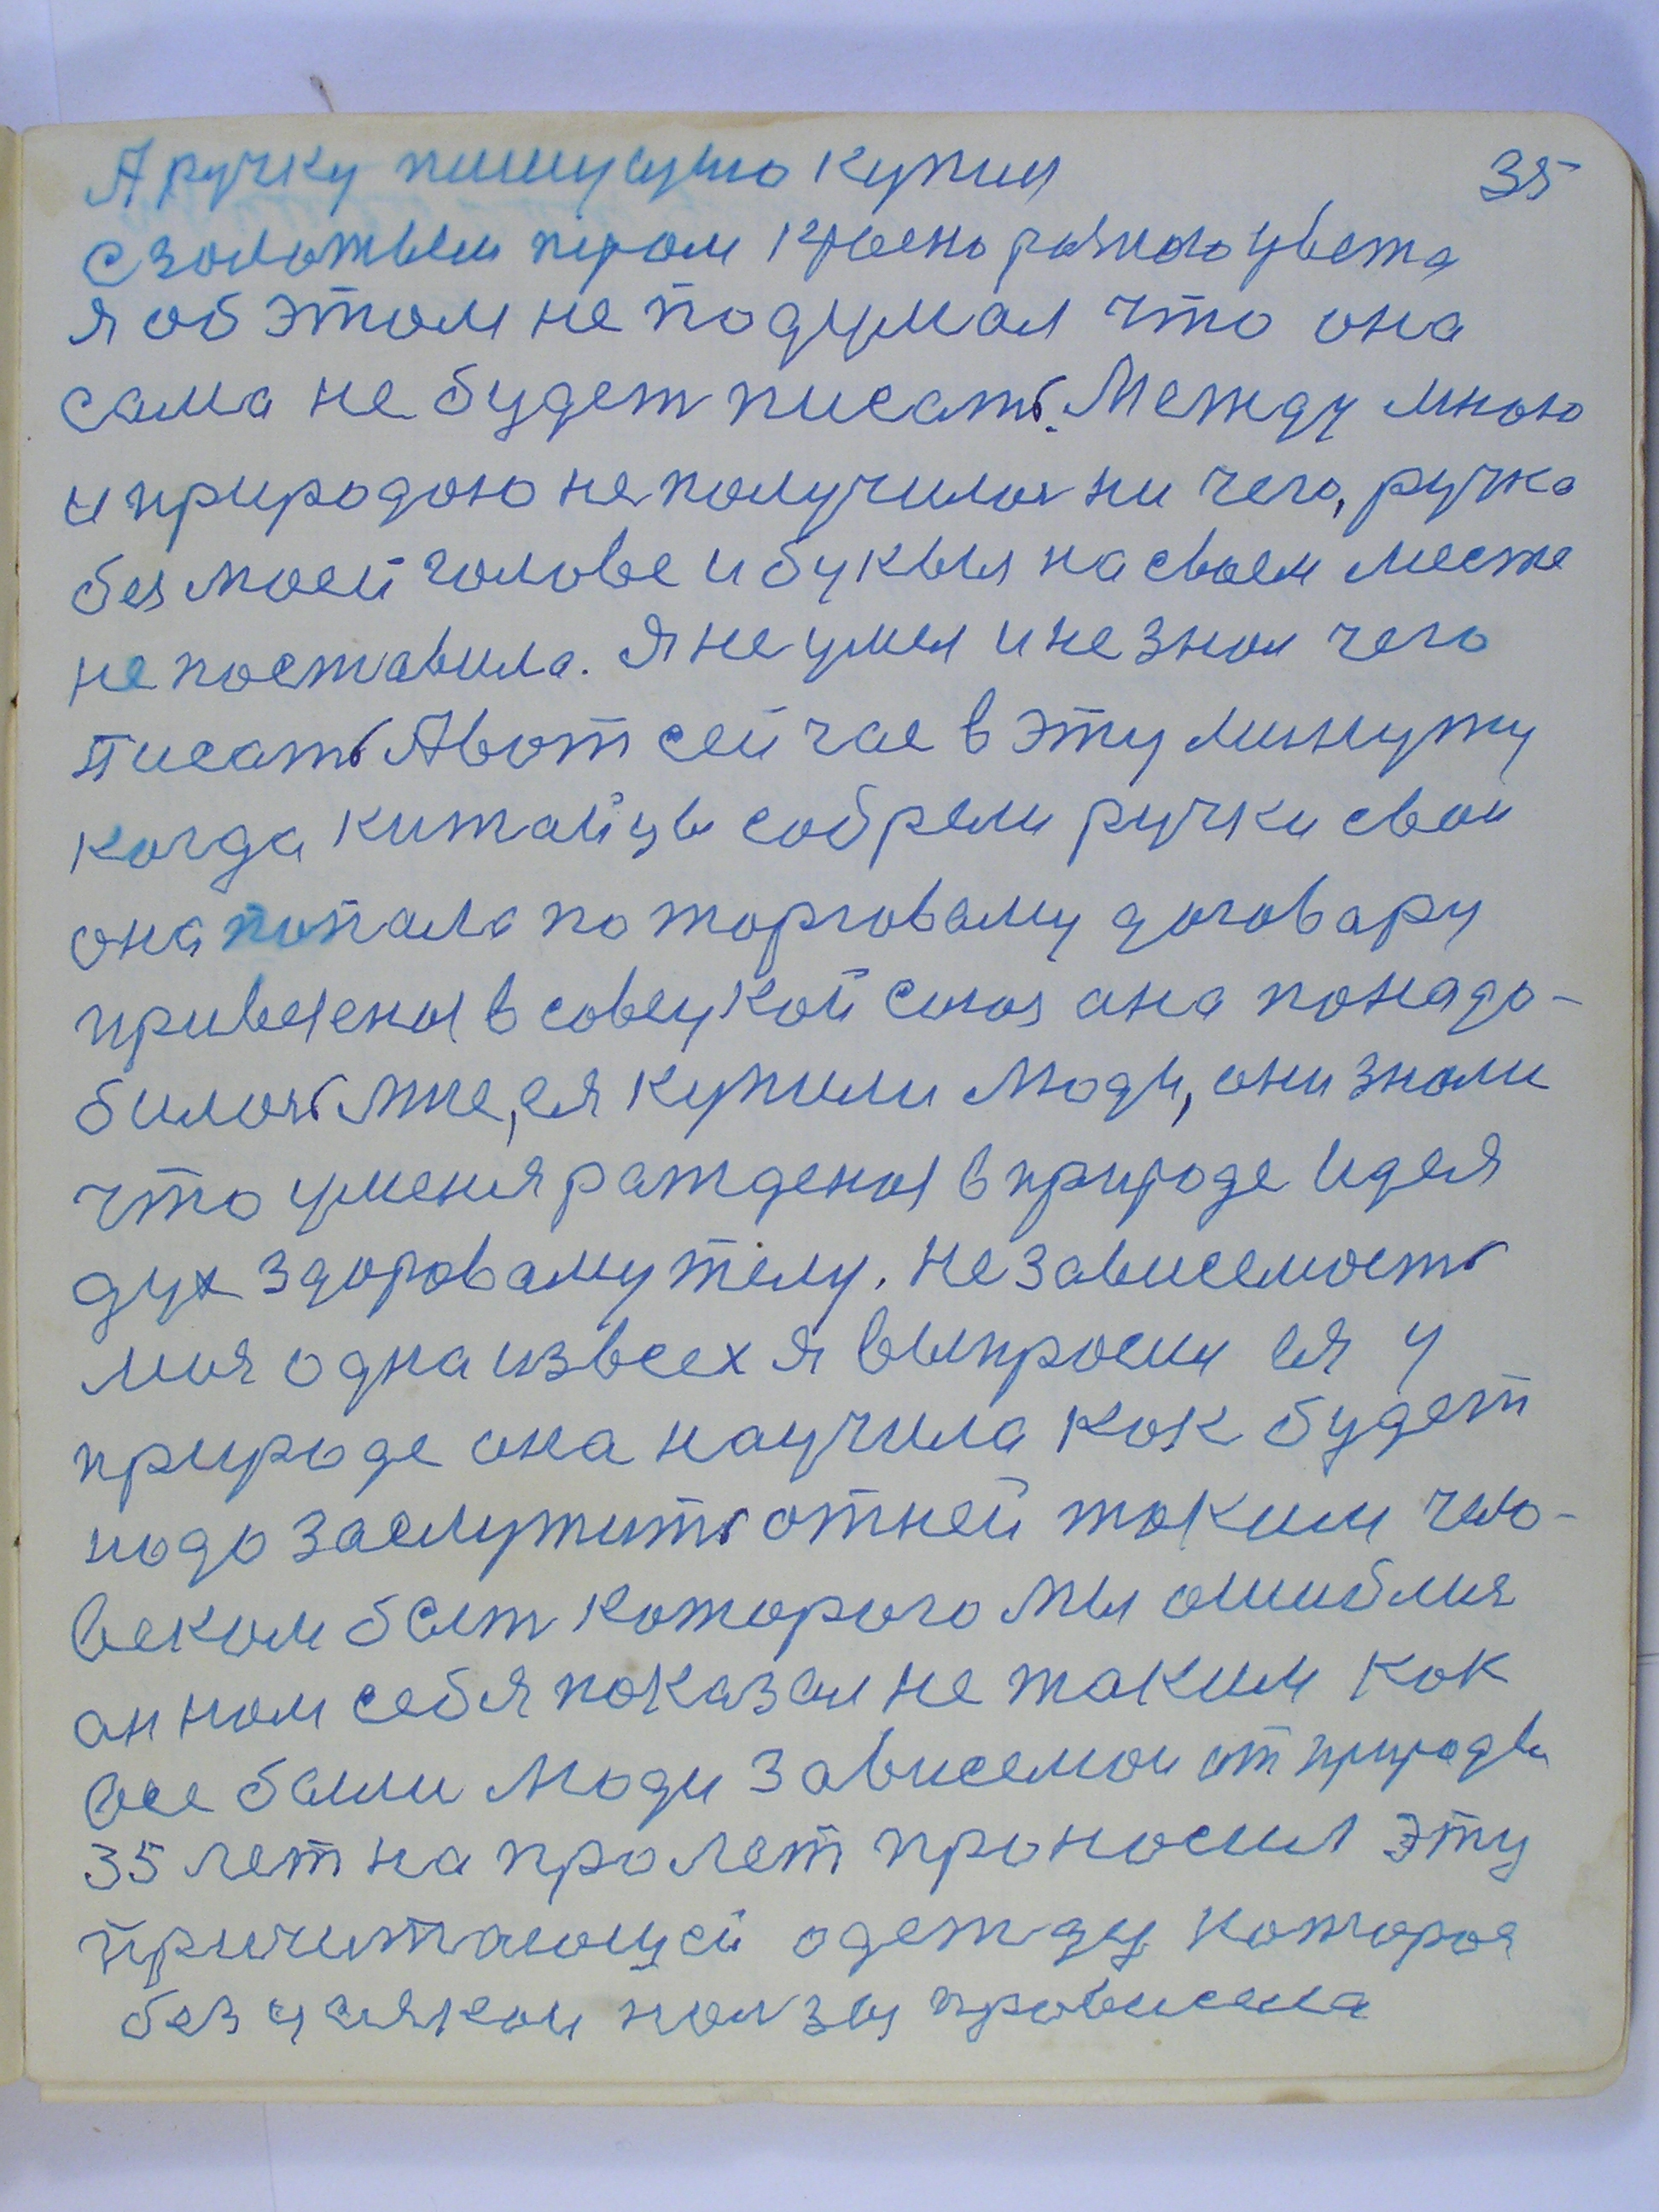 А ручку пишущую купил 35
с золотым пером красно разного цвета
я об этом не подумал что она
сама не будет писать. Между мною
и природою не получилоя ни чего, ручка
без моей голове и буквы на своем месте
не поставила. Я не умел и не знал чего
писать А вот сейчас в эту минуту
когда китайцы собрали ручки свои
она попала по торговаму договару
привезены в совецкой союз ана понадо-
билось мне, ея купили люди, они знали
что уменя раждены в природе идея
дух здороваму телу. Независемость
моя одна из всех я выпросил ея у
природе она научила как будет
надо заслужить от ней таким чело-
веком быт которого мы ошиблия
он нам себя показал не таким как
все были люди зависемои от природы
35 лет на пролет проносил эту
причитающей одежду которая
без усякои ползы провисела